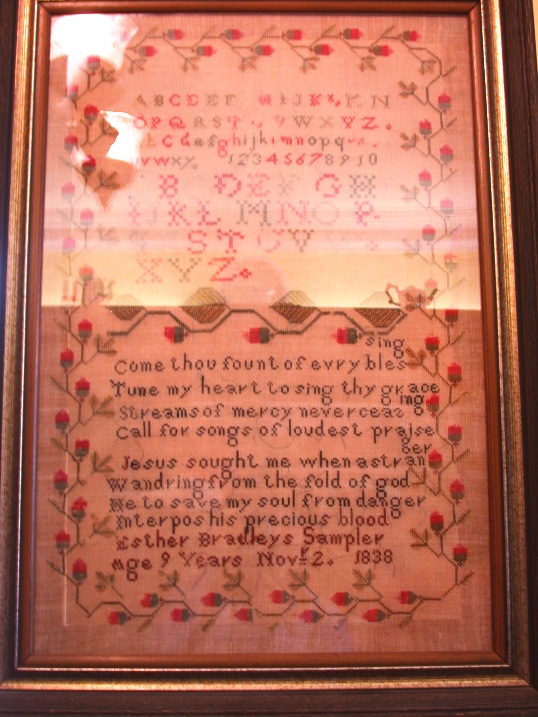 A B C D E F H I J K L K N
O P Q R S T V W X Y Z .
b c d e f g h i j k l m n o p q
v w x y . 1 2 3 4 5 6 7 8 9 10
B D E F G H
K L M N O P
S T U V
X Y Z
sing
Come thou fount of evry bles
Tune my heart to sing thy grace
ing
Streams of mercy never ceas
Call for songs of loudest praise
ger
Jesus sought me when a stran
Wandring from the fold of god
He to save my soul from danger
Interpos his precious blood
Esther Bradleys Sampler
Age 9 Years Novr 2. 1838